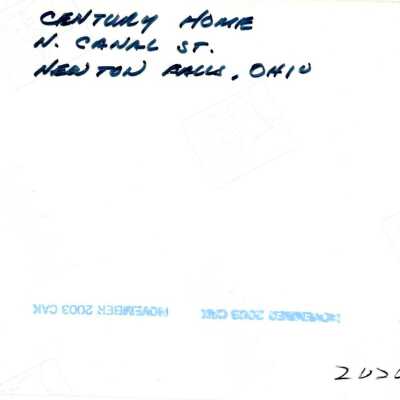 CENTURY HOME
N. CANAL ST.
NEWTON FALLS, OHIO
NOVEMBER 2003 CAK
NOVEMBER 2003 CAK